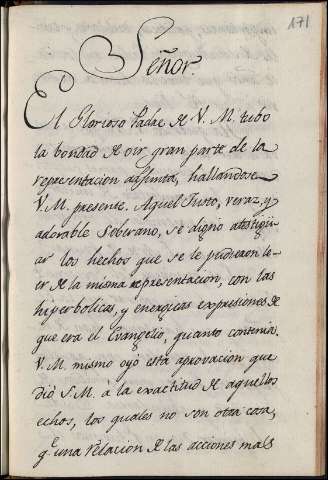 171
Señor.
El Glorioso Padre de V. M. tubo
la bondad de oir gran parte de la
representacion adjunta, hallandose
V. M. presente. Aquel Justo, veraz, y
adorable Soberano, se digno atestigü-
ar los hechos que se le pudieron le-
er de la misma representacion, con las
hiperbolicas, y energicas expresiones de
que era el Evangelio, quanto contenia.
V. M. mismo oyó esta aprovacion que
dió S. M. á la exactitud de aquellos
echos, los quales no son otra cosa,
q.e una relacion de las acciones mas